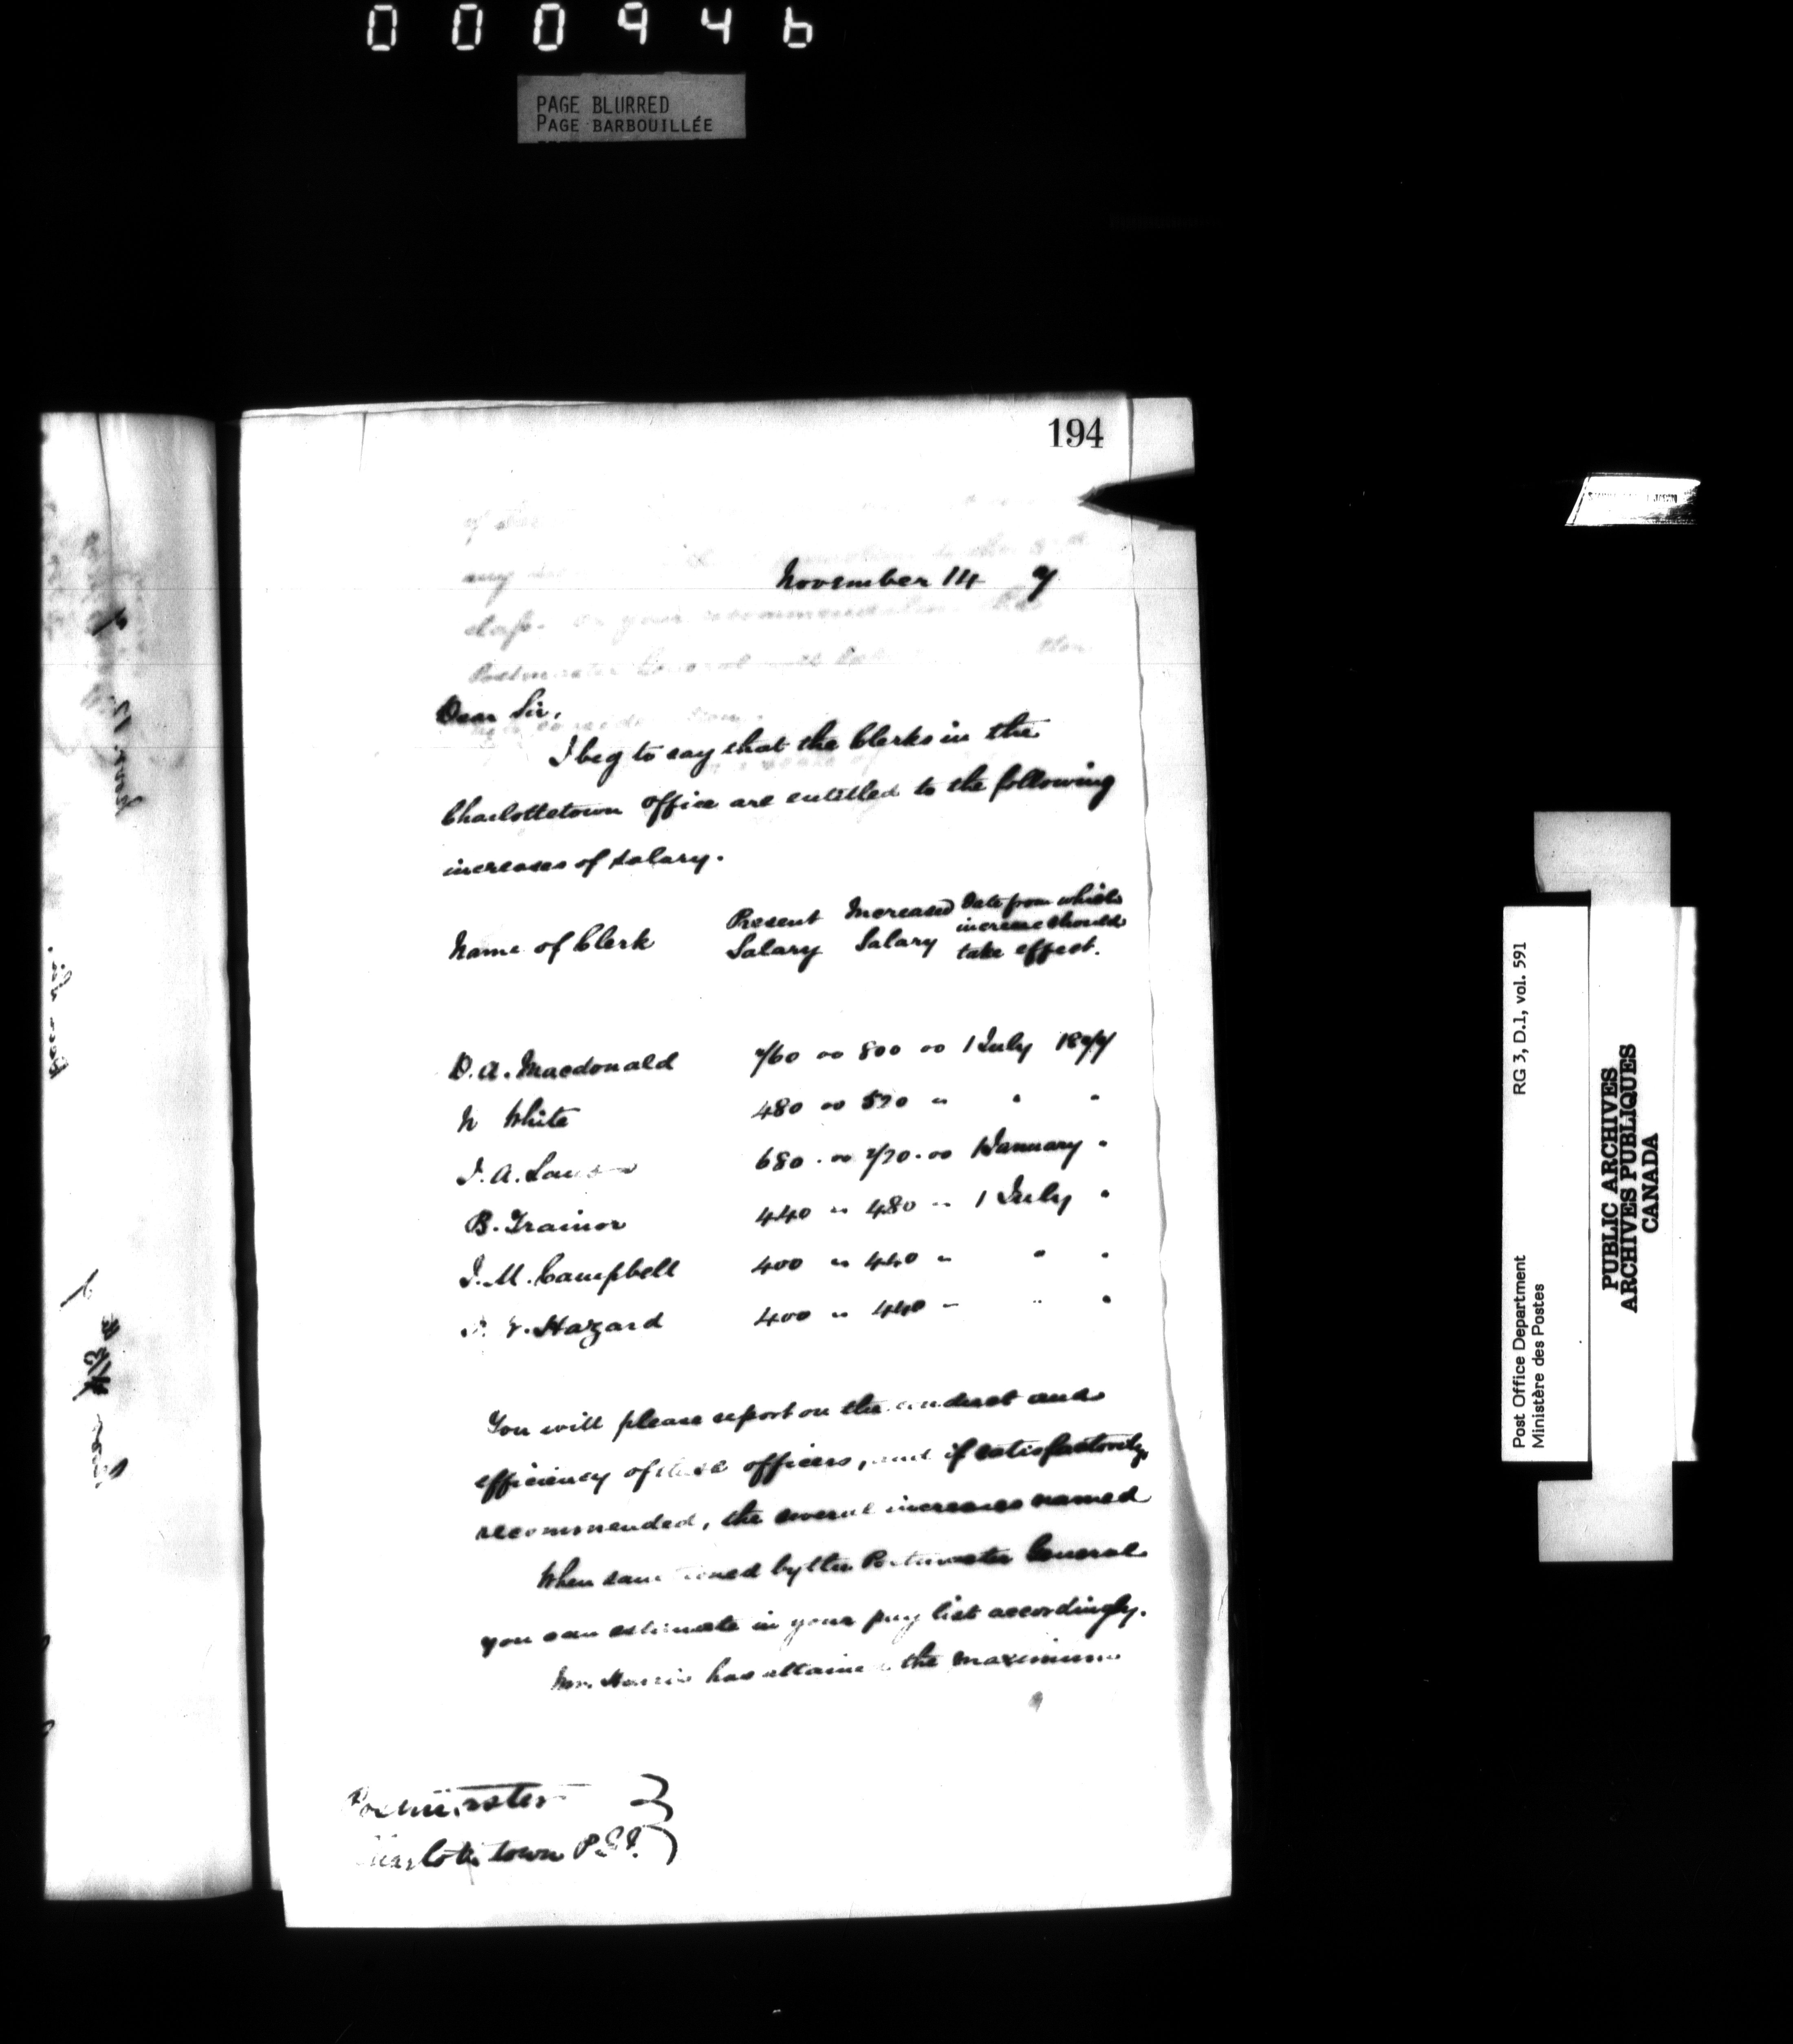 000946
PAGE BLURRED
PAGE BARBOUILLÉE
194
November 14 7
Dear Sir,
I beg to say that the Clerks in the
Charlottetown Office are entitled to the following
increases of salary.
Name of Clerk Present Salary Increased Salary Date from which increase should take effect.
D. A. Macdonald 760 00 800 00 1 July 1877
N White 480 00 520 " " "
J. A. 680 . 00 720 . 00 1 January "
B. Trainor 440 " 480 " 1 July "
J. M. Campbell 400 " 440 " " "
Hazard 400 " 440 " " "
You will please report on the conduct and
efficiency of these officers, and if satisfactorily
recommended, the several increases named
When sanctioned by the Postmaster General
you can estimate in your pay list accordingly.
Mr. Harris has attained the maximum
Postmaster
Charlottetown P.E.I.
Post Office Department
Ministère des Postes
RG 3, D.1, vol. 591
PUBLIC ARCHIVES
ARCHIVES PUBLIQUES
CANADA